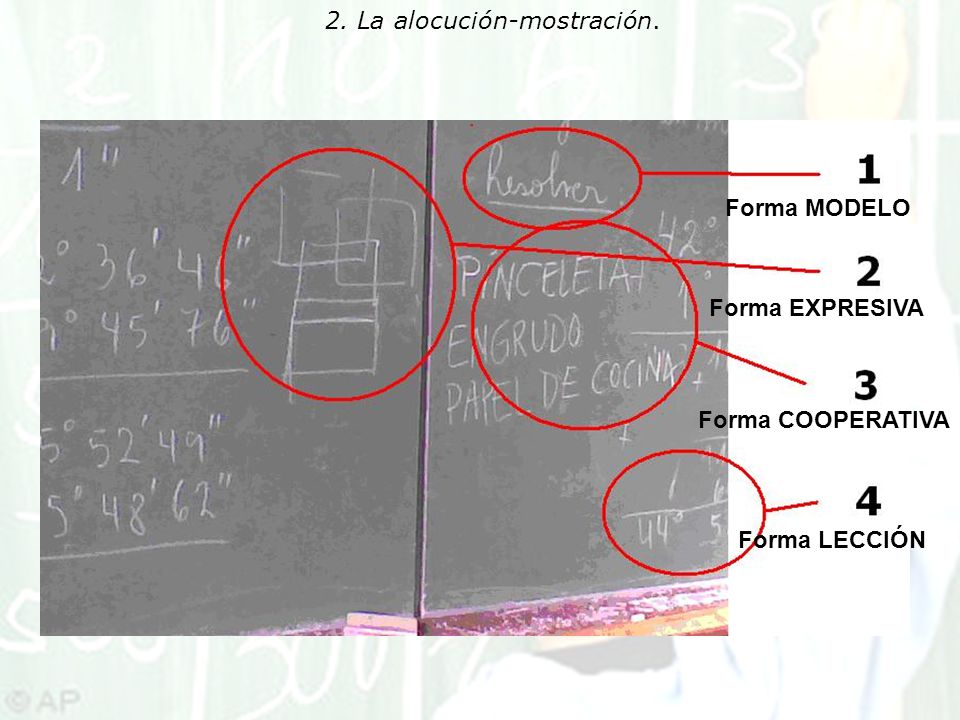 2. La alocución-mostración.
1"
36' 46"
45' 76"
5° 52' 49"
5° 48' 62"
Resolver
42°
PINCELETA
ENGRUDO
PAPEL DE COCINA
+
44° 5
1
Forma MODELO
2
Forma EXPRESIVA
3
Forma COOPERATIVA
4
Forma LECCIÓN
© AP